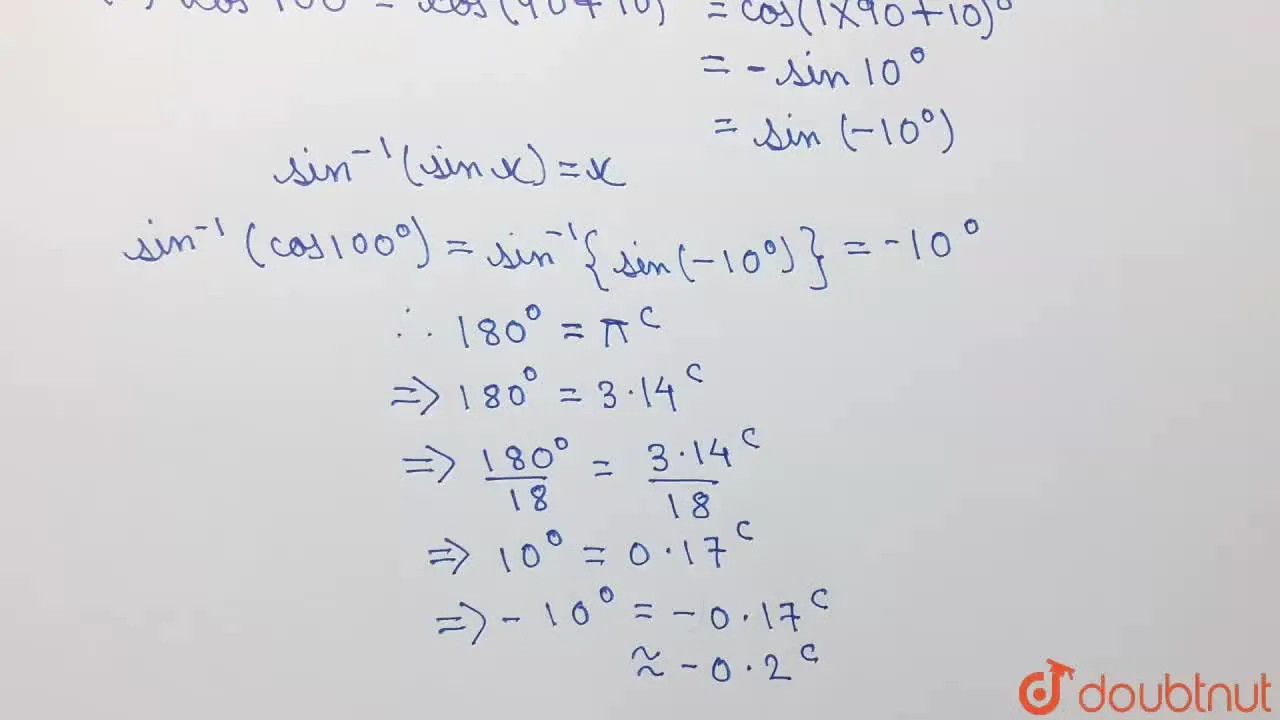 cos 100° = cos(90+10)° = cos(1×90+10)°
= -sin 10°
= sin (-10°)
sin⁻¹(sin x) = x
sin⁻¹ (cos100°) = sin⁻¹{sin(-10°)} = -10°
∴ 180° = π^c
⇒ 180° = 3.14^c
⇒ 180°/18 = 3.14^c/18
⇒ 10° = 0.17^c
⇒ -10° = -0.17^c
≈ -0.2^c
doubtnut